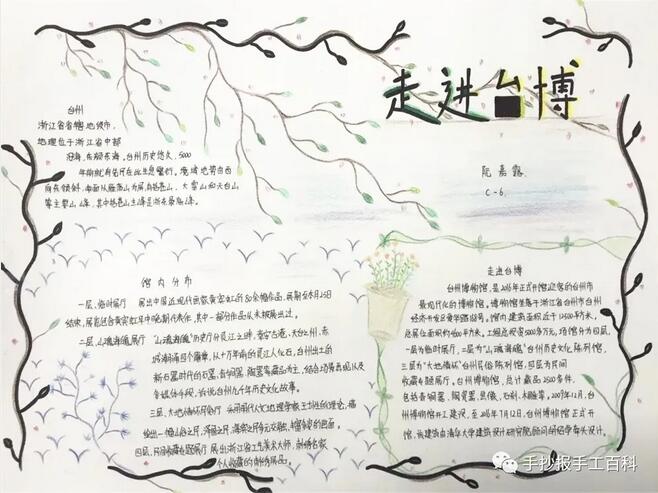 走进台博
阮嘉露
C-6
台州
浙江省省辖地级市，
地理位于浙江省中部
沿海，东频东海。台州历史悠久，5000
年前就有先民在此生息繁衍。境域地势由西
向东倾斜，南面以雁荡山为屏，有括苍山、大雷山和天台山
等主要山峰，其中括苍山主峰是浙东最高峰。
馆内分布
一层、临时展厅 展出中国近现代画家黄宾虹的80余幅作品，展期至8月25日
结束，展览包含黄宾虹早中晚期代表作，其中一部分作品从未披展出过。
二层、"山魂海魄"展厅 "山魂海魄"历史厅分员江之畔、章安古港、天台之州、东
城潮涌四个篇章，从十万年前的员江人化石，台州出土的
新石器时代的石器、青铜器、陶器瓷藏品为主，结合场景再现以及
多媒体手段，诉说台州九千年历史文化故事。
三层、大地情怀展厅 采用现代人文地理学家王士性的理论，描
绘出一幅山谷之民、泽国之民、海滨之民多元交融、富有多的画面。
四层、民间收藏专题展厅 展出浙江省工艺美术大师、刺绣名家
个人收藏的刺绣展品。
走进台博
台州博物馆，是2016年正式开馆迎客的台州市
最现代化的博物馆。博物馆坐落于浙江省台州市台州
经济开发区爱华路168号。馆内建筑面积近于12500平方米，
总展陈面积约4600平方米。工程总投资5000多万元。场馆分为四层，
一层为临时展厅、二层为"山魂海魄"台州历史文化陈列馆、
三层为"大地情怀"台州民俗陈列馆、四层为民间
收藏专题展厅。台州博物馆，总计藏品2500条件，
包括青铜器、陶瓷器、恐像、石刻、木雕等。2009年12月，台
州博物馆开工建设，至2016年7月12日，台州博物馆正式开
馆，该建筑由清华大学建筑设计研究院顾问胡绍学牵头设计。
手抄报手工百科